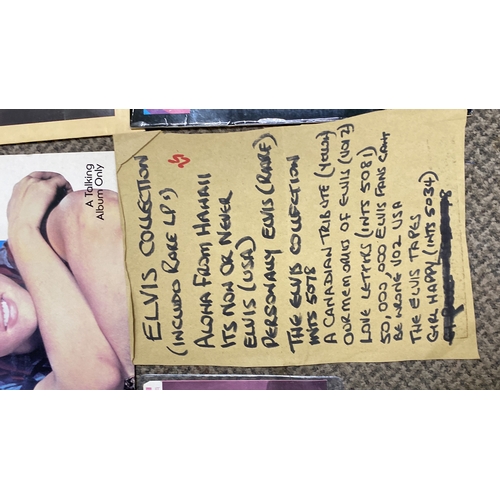 A Talking
Album Only
ELVIS COLLECTION
(INCLUDES RARE LP's)
ALOHA FROM HAWAII
ITS NOW OR NEVER
ELVIS (USA)
PERSONALLY ELVIS (RARE)
THE ELVIS COLLECTION
INTS 5078
A CANADIAN TRIBUTE (YELLOW)
OUR MEMORIES OF ELVIS (VOL 2)
LOVE LETTERS (INTS 5081)
50,000,000 ELVIS FANS CANT
BE WRONG VOL2 USA
THE ELVIS TAPES
GIRL HAPPY (INTS 5034)